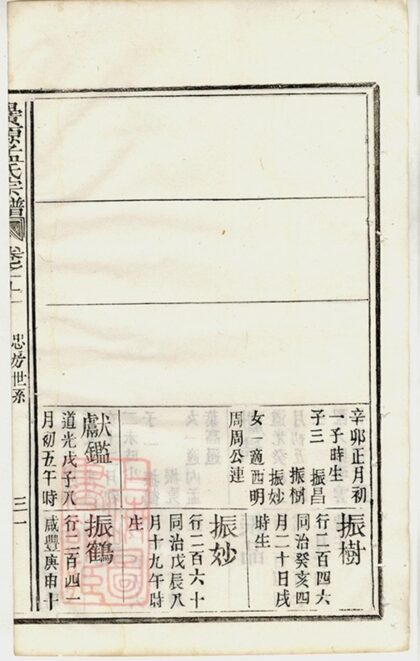 辛卯正月初
一子時生
子三 振昌
振樹
振妙
女一適西明
周周公連
獻鑑
道光戊子八
月初五午時
振樹
行二百四六
同治癸亥四
月二十日戌
時生
振妙
行二百六十
同治戊辰八
月十九午時
生
振鶴
行二百四一
咸豐庚申十
氏宗譜
卷之十一
忠房世系